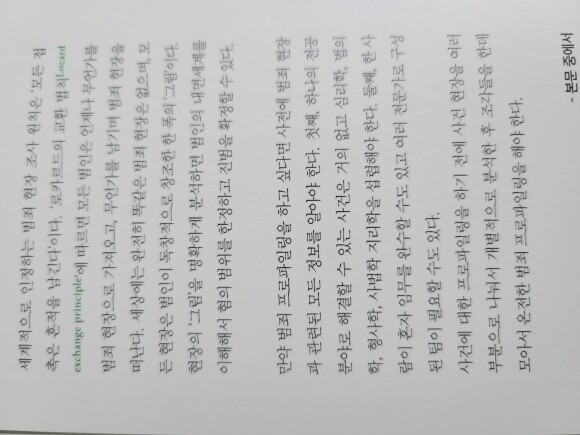 세계적으로 인정하는 범죄 현장 조사 원칙은 '모든 접
촉은 흔적을 남긴다'이다. '로카르드의 교환 법칙Locard
exchange principle'에 따르면 모든 범인은 언제나 무언가를
범죄 현장으로 가져오고, 무언가를 남기며 범죄 현장을
떠난다. 세상에는 완전히 똑같은 범죄 현장은 없으며 모
든 현장은 범인이 독창적으로 창조한 한 폭의 '그림'이다.
현장의 '그림'을 명확하게 분석하면 범인의 내면세계를
이해해서 혐의 범위를 한정하고 진범을 확정할 수 있다.
만약 범죄 프로파일링을 하고 싶다면 사전에 범죄 현장
과 관련된 모든 정보를 알아야 한다. 첫째, 하나의 전공
분야로 해결할 수 있는 사건은 거의 없고 심리학, 법의
학, 형사학, 사법학, 지리학을 섭렵해야 한다. 둘째, 한 사
람이 혼자 임무를 완수할 수도 있고 여러 전문가로 구성
된 팀이 필요할 수도 있다.
사건에 대한 프로파일링을 하기 전에 사건 현장을 여러
부분으로 나눠서 개별적으로 분석한 후 조각들을 한데
모아서 온전한 범죄 프로파일링을 해야 한다.
- 본문 중에서